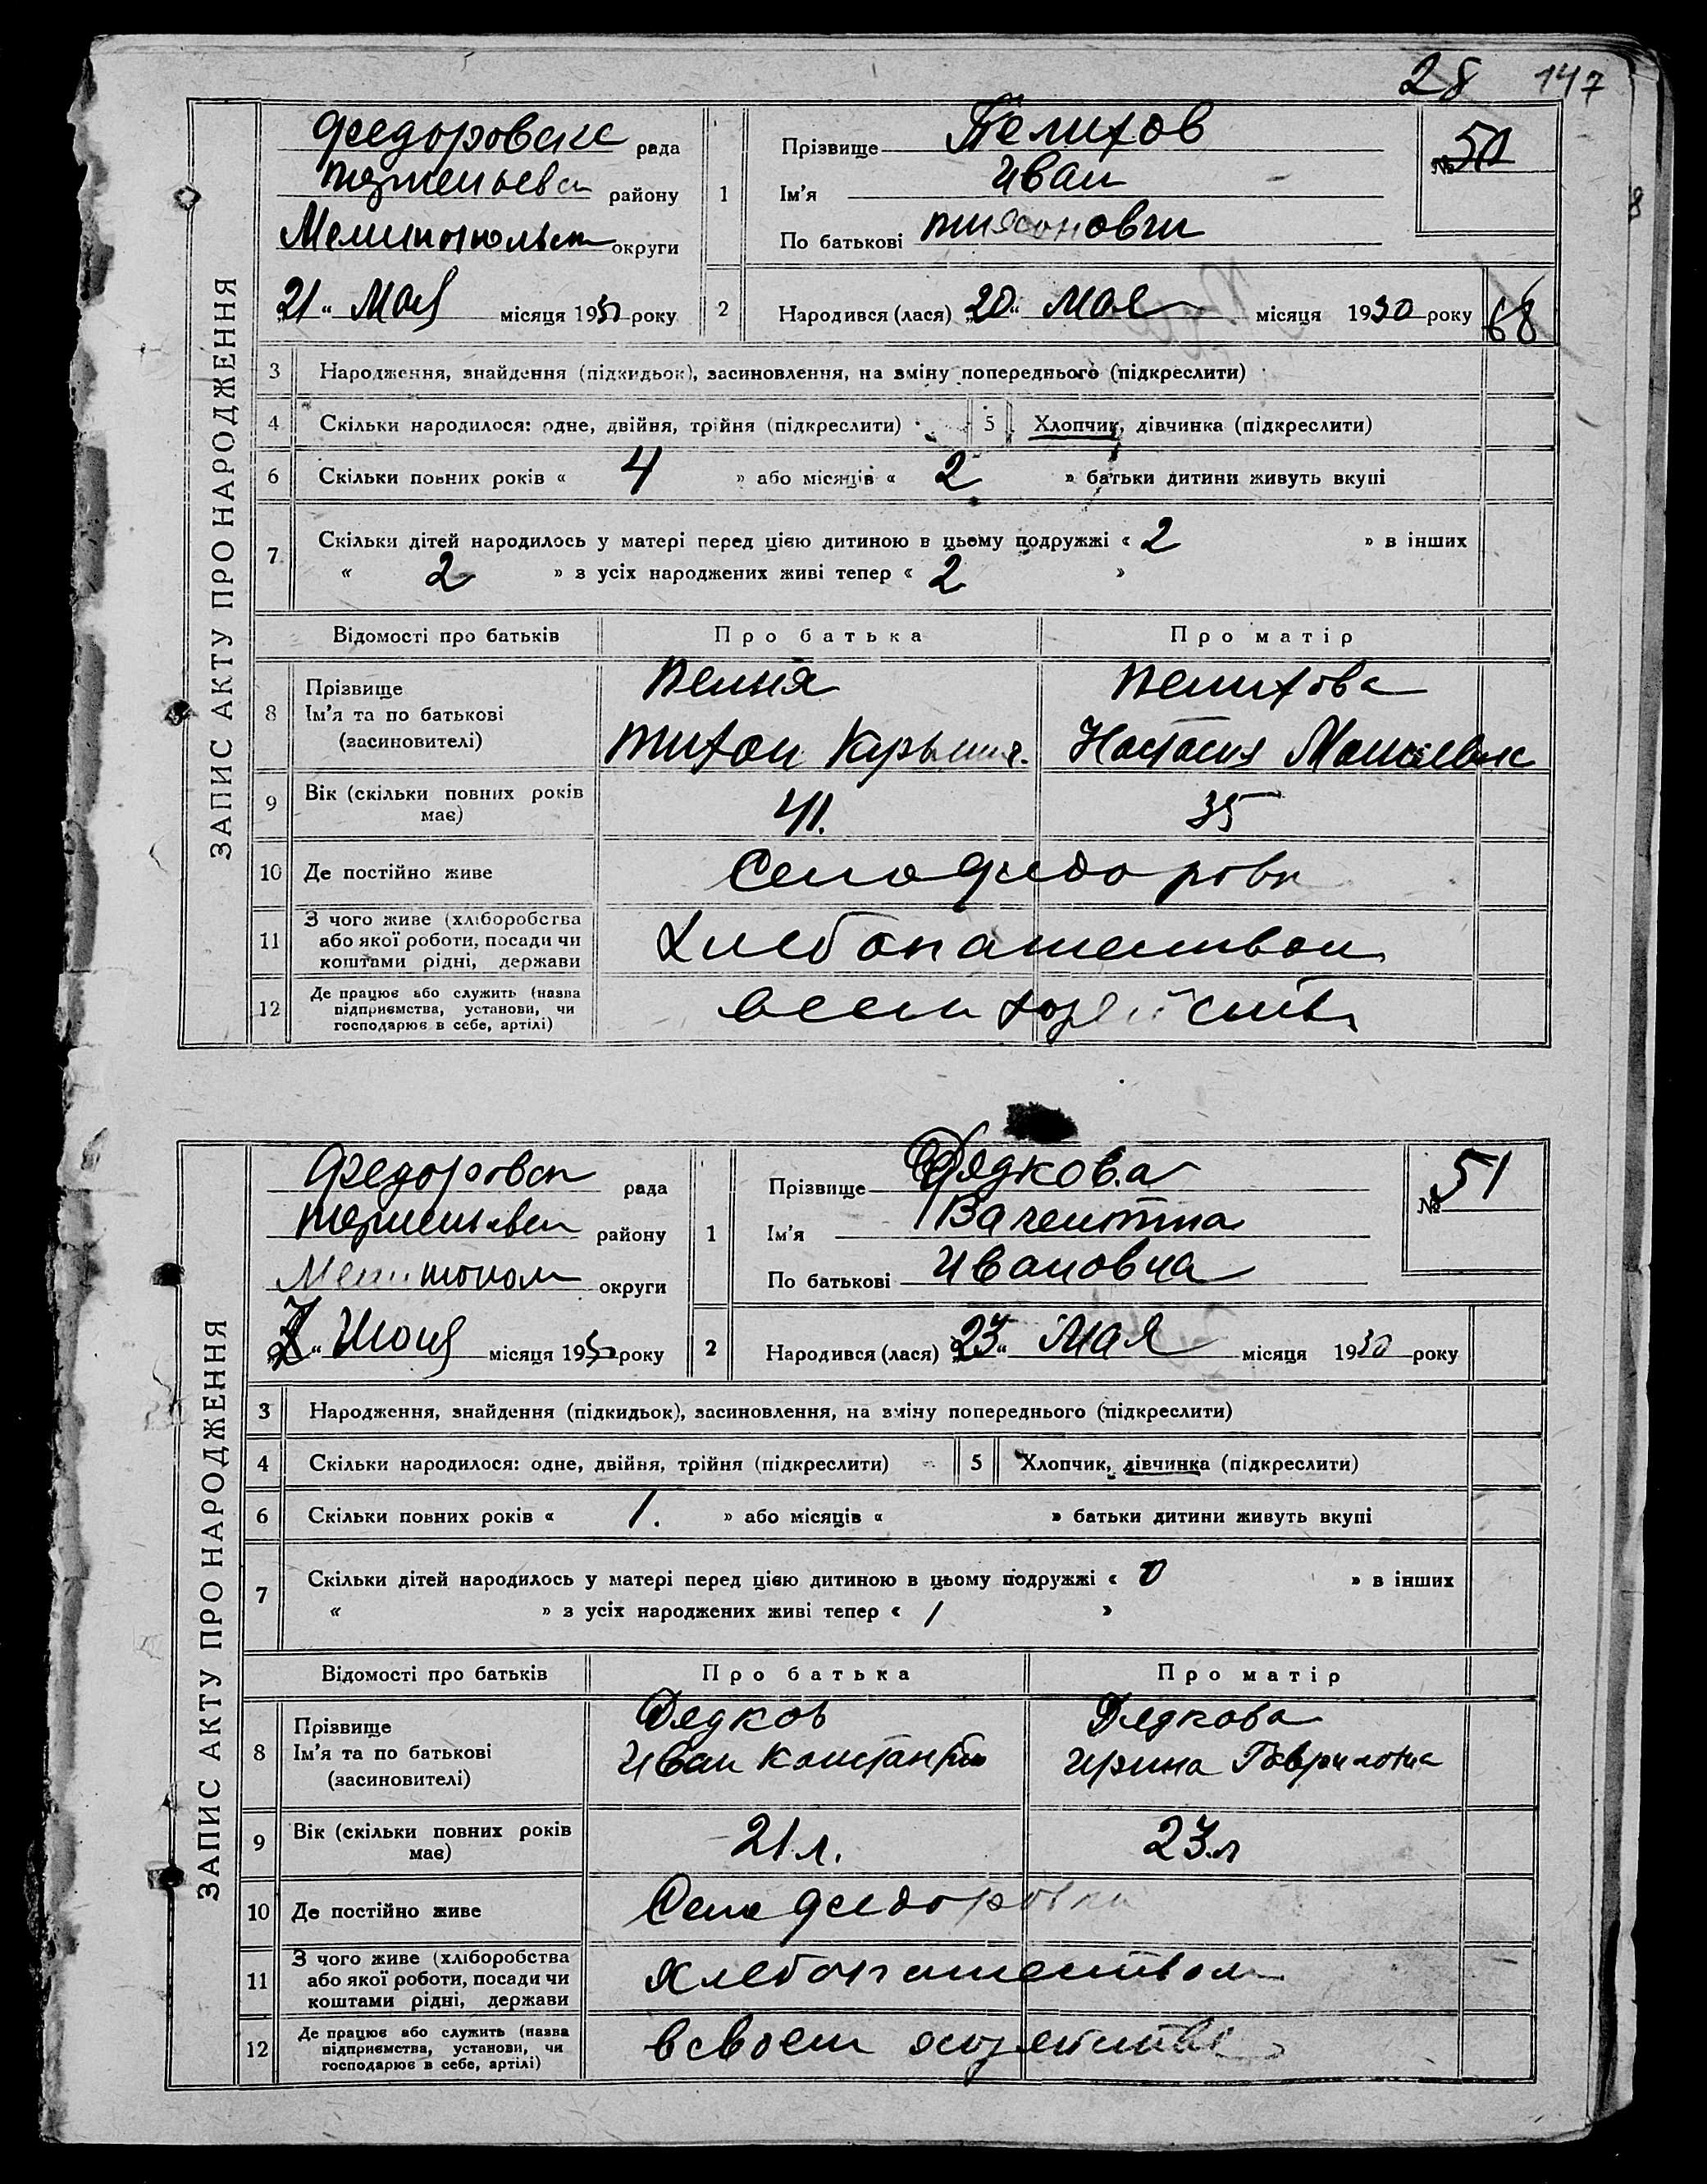 28 147
ЗАПИС АКТУ ПРО НАРОДЖЕННЯ
Федоровске рада
району
округи
21 " Мая місяця 1930 року
1
Прізвище Пелихов
Ім'я Иван
По батькові Тихонович
№ 50
8
2
Народився (лася) 20 " Мая місяця 1930 року
68
3 Народження, знайдення (підкидьок), засиновлення, на зміну попереднього (підкреслити)
4 Скільки народилося: одне, двійня, трійня (підкреслити)
5 Хлопчик, дівчинка (підкреслити)
6 Скільки повних років « 4 » або місяців « 2 » батьки дитини живуть вкупі
7 Скільки дітей народилось у матері перед цією дитиною в цьому подружжі « 2 » в інших
« 2 » з усіх народжених живі тепер « 2 »
Відомості про батьків Про батька Про матір
8 Прізвище
Ім'я та по батькові
(засиновителі)
Пелихова
Тихон
Настасия
9 Вік (скільки повних років має) 41. 35
10 Де постійно живе Село Федоровк
11 З чого живе (хліборобства
або якої роботи, посади чи
коштами рідні, держави
Хлебопашеством
12 Де працює або служить (назва
підприємства, установи, чи
господарює в себе, артілі)
ЗАПИС АКТУ ПРО НАРОДЖЕННЯ
Федоровск рада
району
Мелитопол округи
Июня місяця 1930 року
1
Прізвище Дядкова
Ім'я Валентина
По батькові Ивановна
№ 51
2
Народився (лася) 23 " Мая місяця 1930 року
3 Народження, знайдення (підкидьок), засиновлення, на зміну попереднього (підкреслити)
4 Скільки народилося: одне, двійня, трійня (підкреслити)
5 Хлопчик, дівчинка (підкреслити)
6 Скільки повних років « 1. » або місяців « » батьки дитини живуть вкупі
7 Скільки дітей народилось у матері перед цією дитиною в цьому подружжі « 0 » в інших
« » з усіх народжених живі тепер « 1 »
Відомості про батьків Про батька Про матір
8 Прізвище
Ім'я та по батькові
(засиновителі)
Дядков Дядкова
Иван Константин Ирина Гавриловна
9 Вік (скільки повних років має) 21 л. 23 л
10 Де постійно живе Село Федоровки
11 З чого живе (хліборобства
або якої роботи, посади чи
коштами рідні, держави
Хлебопашеством
12 Де працює або служить (назва
підприємства, установи, чи
господарює в себе, артілі)
в своем хозяйстве